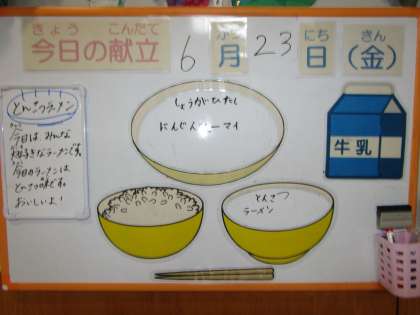 きょう こんだて
今日の献立
6
がつ
月
23
にち
日
きん
(金)
とんこつラーメン
今日は みんな
大好きなラーメンです。
今日のラーメンは
とんこつ味です。
おいしいよ!
しょうがひたし
にんじんシューマイ
牛乳
とんこつ
ラーメン